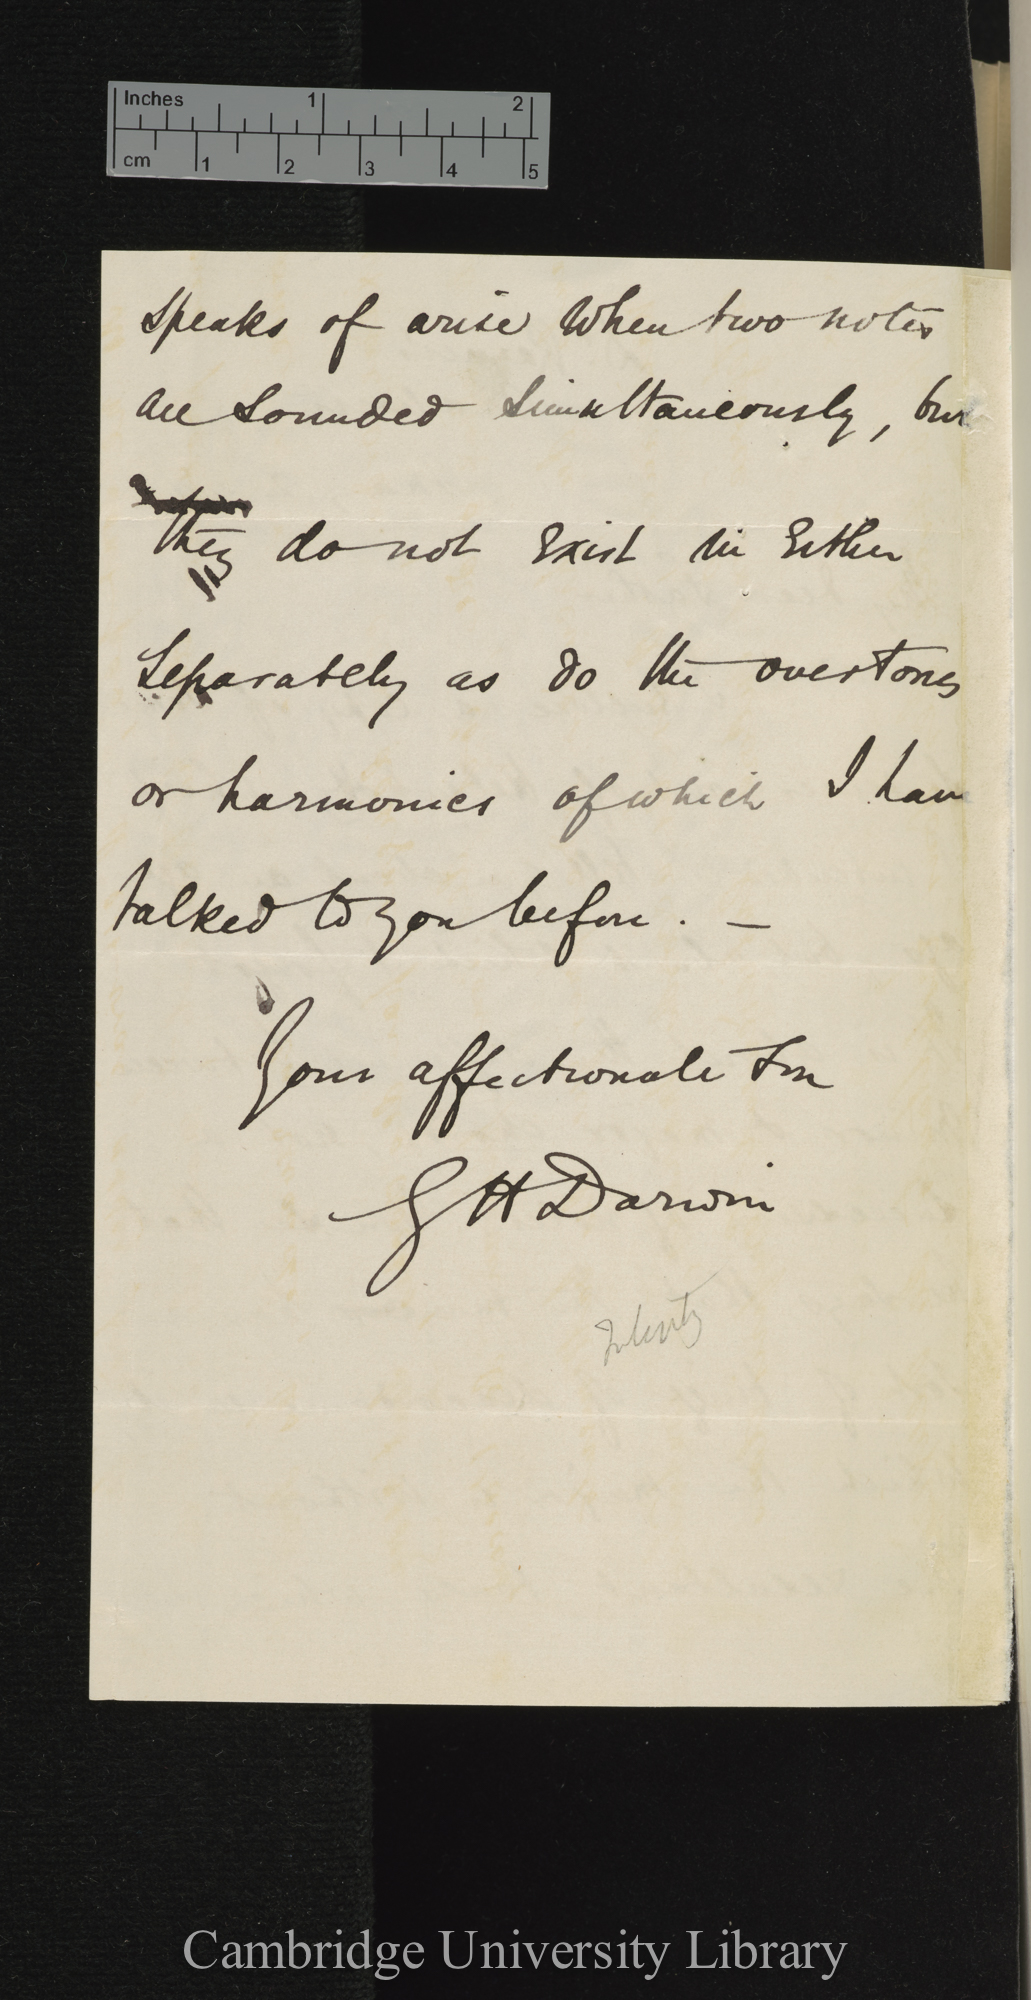 Inches 1 2
cm 1 2 3 4 5
speaks of arise when two notes
are sounded simultaneously, but
they do not exist in either
separately as do the overtones
or harmonics of which I have
talked to you before. —
Your affectionate son
G H Darwin
Cambridge University Library